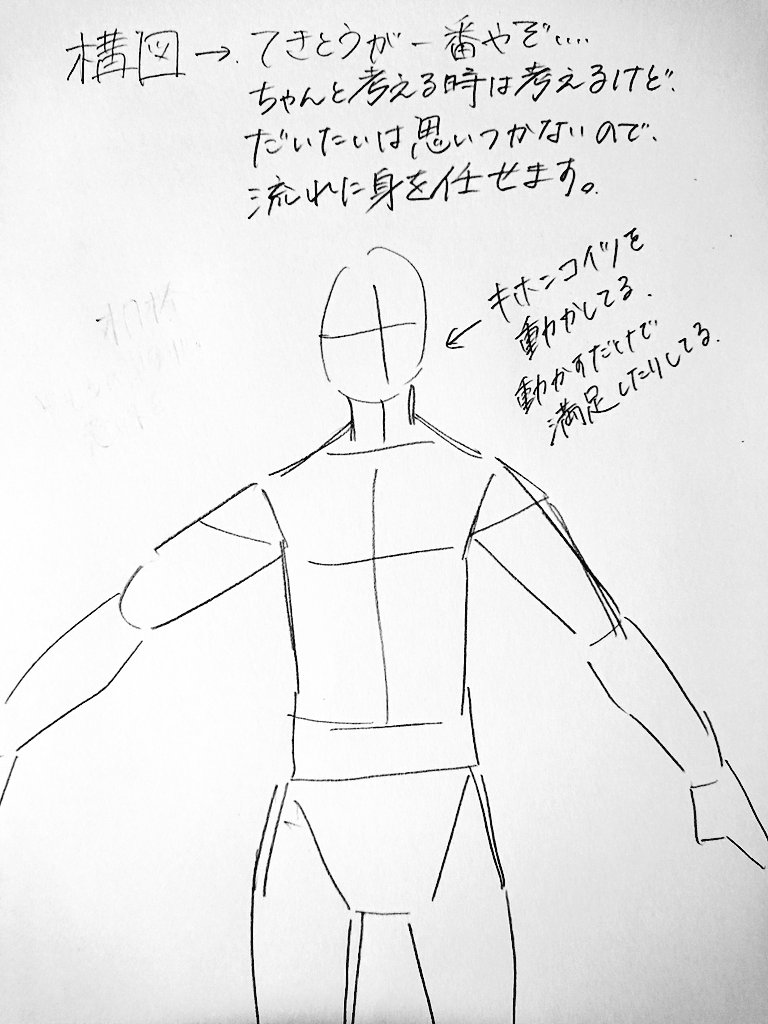 構図→てきとうが一番やぞ....
ちゃんと考える時は考えるけど、
だいたいは思いつかないので、
流れに身を任せます。
←キホンコイツを
動かしてる、
動かすだけで
満足したりしてる、